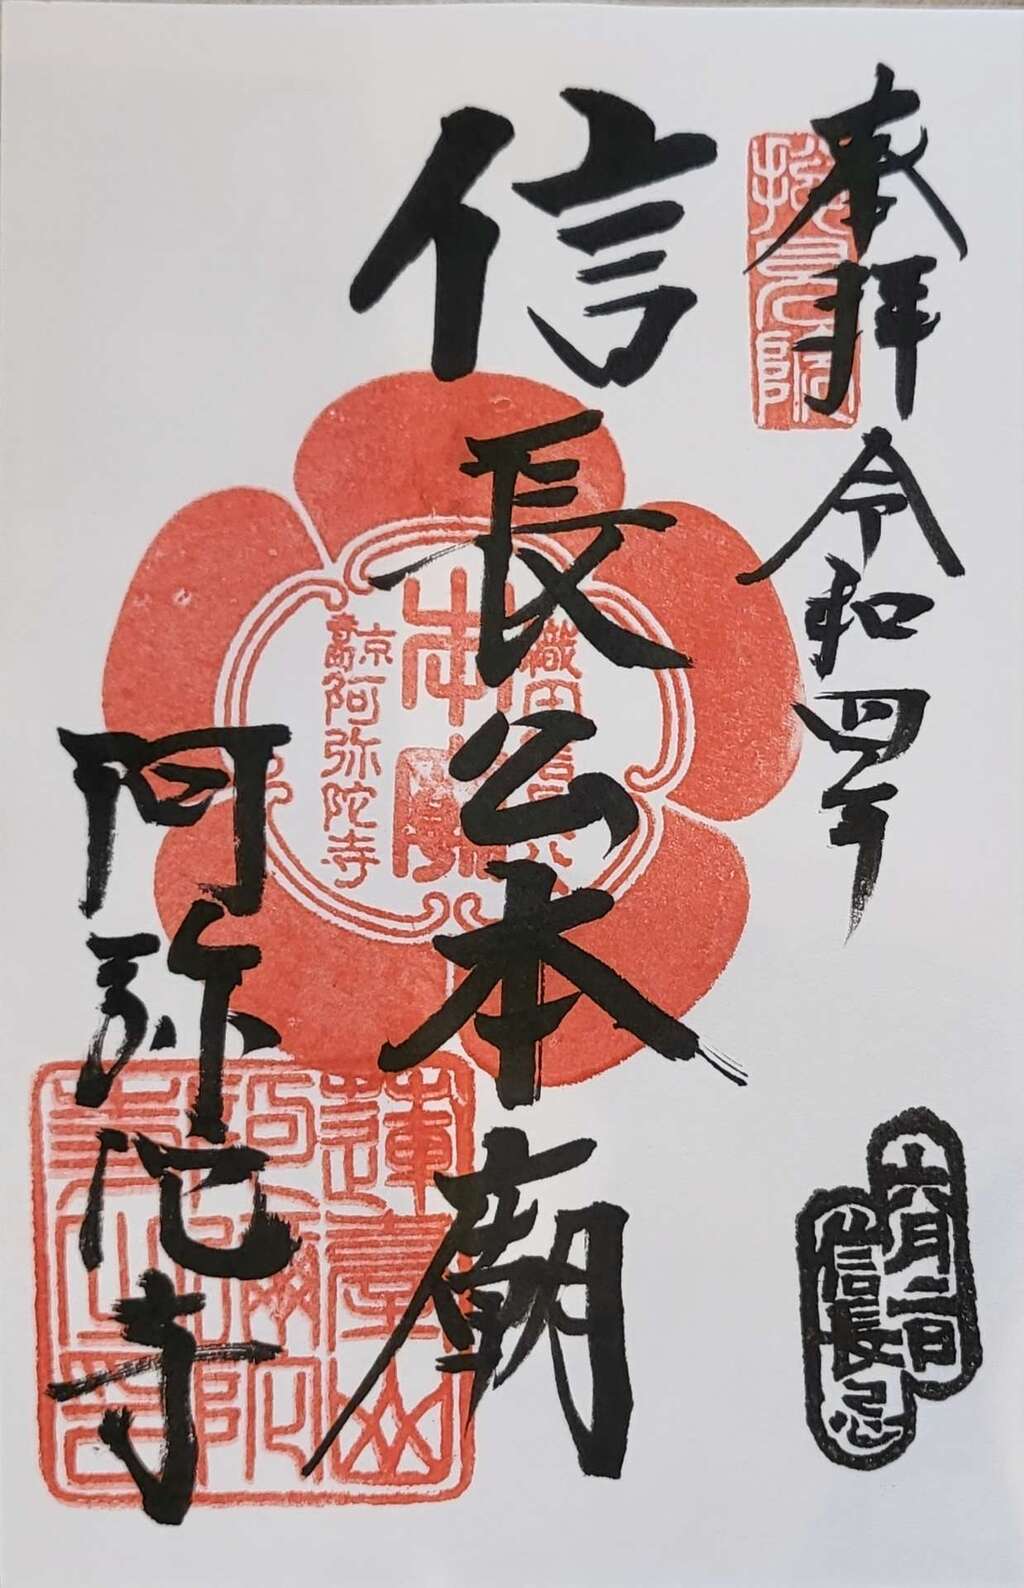 奉拝 令和四年
六月二日
信長忌
信長公本廟
阿弥陀寺
本廟
阿弥陀寺
蓮臺山